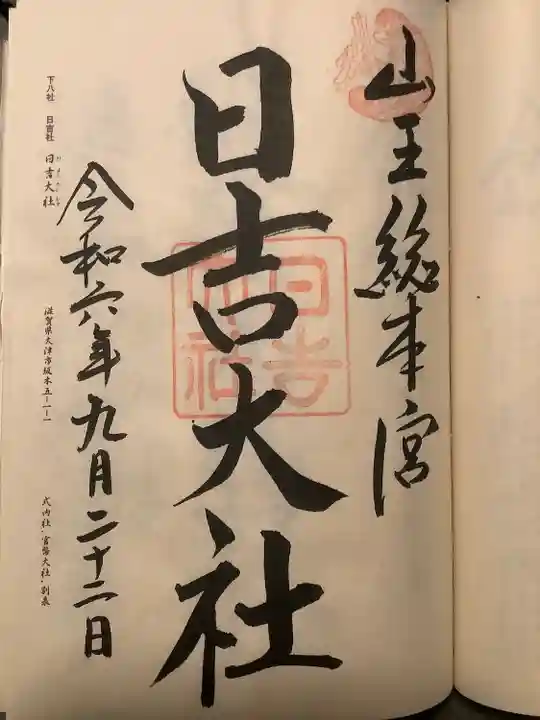 山王総本宮
日吉大社
日吉大社
令和六年九月二十二日
下八社 日吉社 日吉大社
ひよしたいしゃ
滋賀県大津市坂本五-一-一
式内社・官幣大社・別表